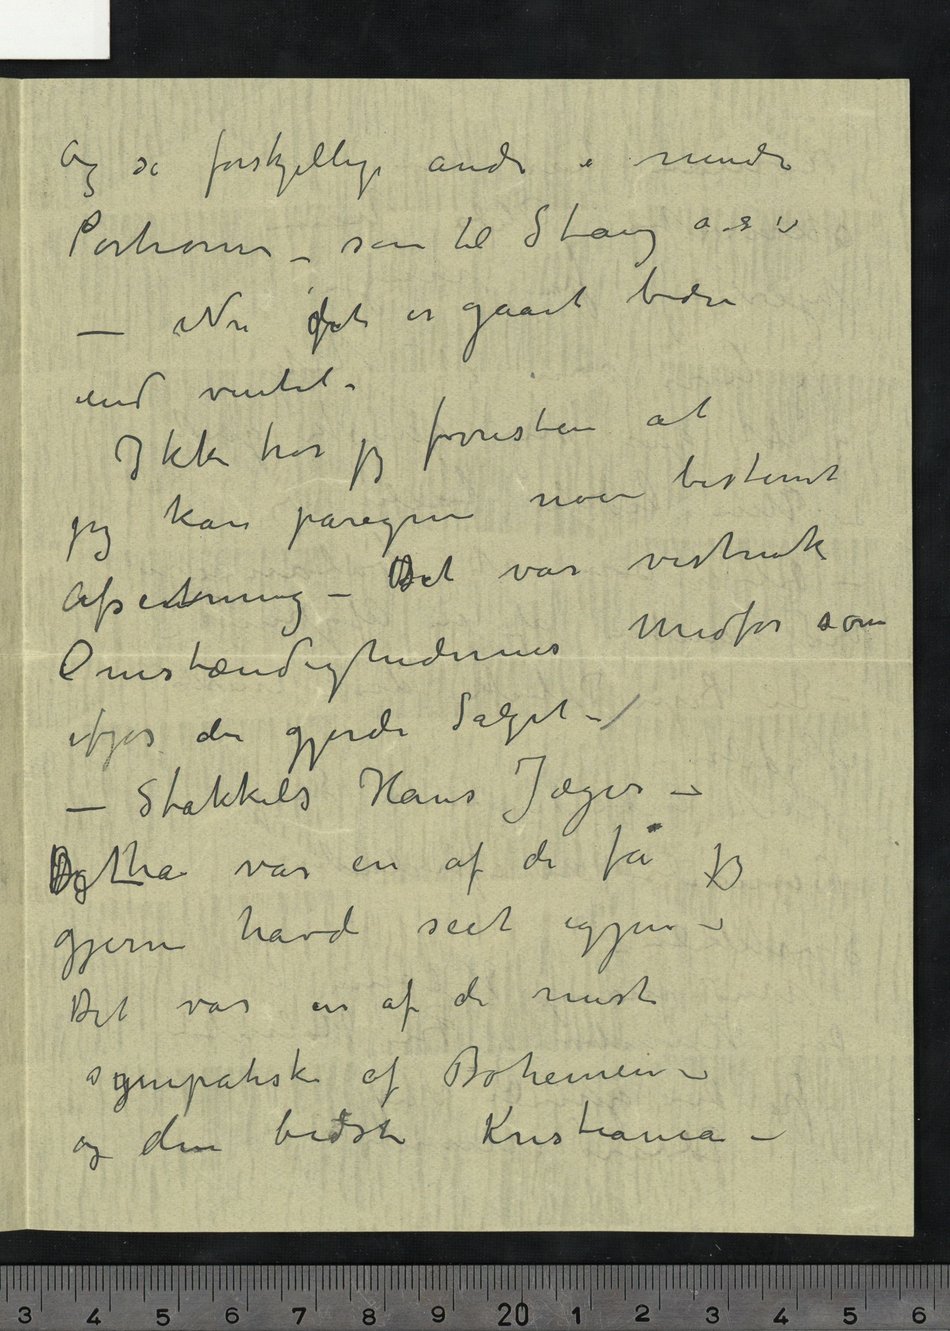 Og så forskjellige andre i mindre
Portioner – som til Stang o.s.v
– Nu det er gaaet bedre
end ventet –
Ikke tror jeg forresten at
jeg kan påregne noen bestemt
Afsetning – Det var vistnok
Omstændighedernes Medfør som
ifjor der gjorde Salget –
– Stakkels Hans Jæger –
Dette var en af de få jeg
gjerne havd seet igjen –
Det var en af de mest
sympatiske af Bohemen –
og den bedste Kristiania –
3 4 5 6 7 8 9 20 1 2 3 4 5 6